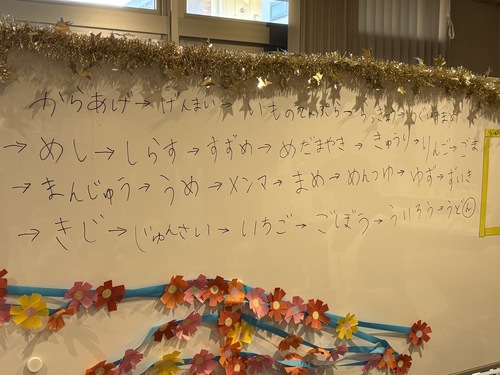 からあげ→げんまい→いものてんぷら→らっきょう→
→めし→しらす→すずめ→めだまやき→きゅうり→りんご→ごま
→まんじゅう→うめ→メンマ→まめ→めんつゆ→ゆず→ずいき
→きじ→じゅんさい→いちご→ごぼう→ういろう→うどん